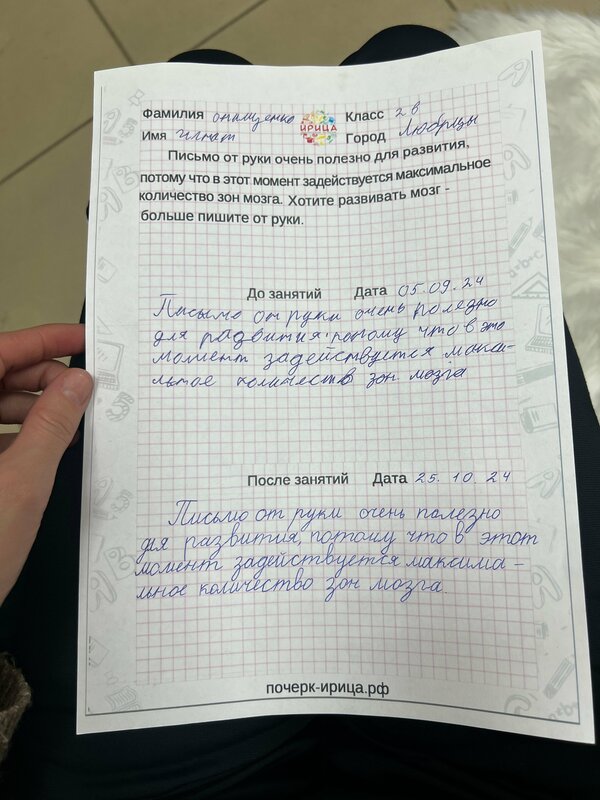 Фамилия онищенко ИРИЦА Класс 2 в
Имя игнат Город Люберцы
Письмо от руки очень полезно для развития,
потому что в этот момент задействуется максимальное
количество зон мозга. Хотите развивать мозг -
больше пишите от руки.
До занятий Дата 05.09.24
Письмо от руки очень полезно
для развития, потому что в это
момент задействуется макси-
льное количеств зон мозга
После занятий Дата 25.10.24
Письмо от руки очень палезно
для развития, потому что в этот
момент задействуется максима-
льное количество зон мозга.
почерк-ирица.рф